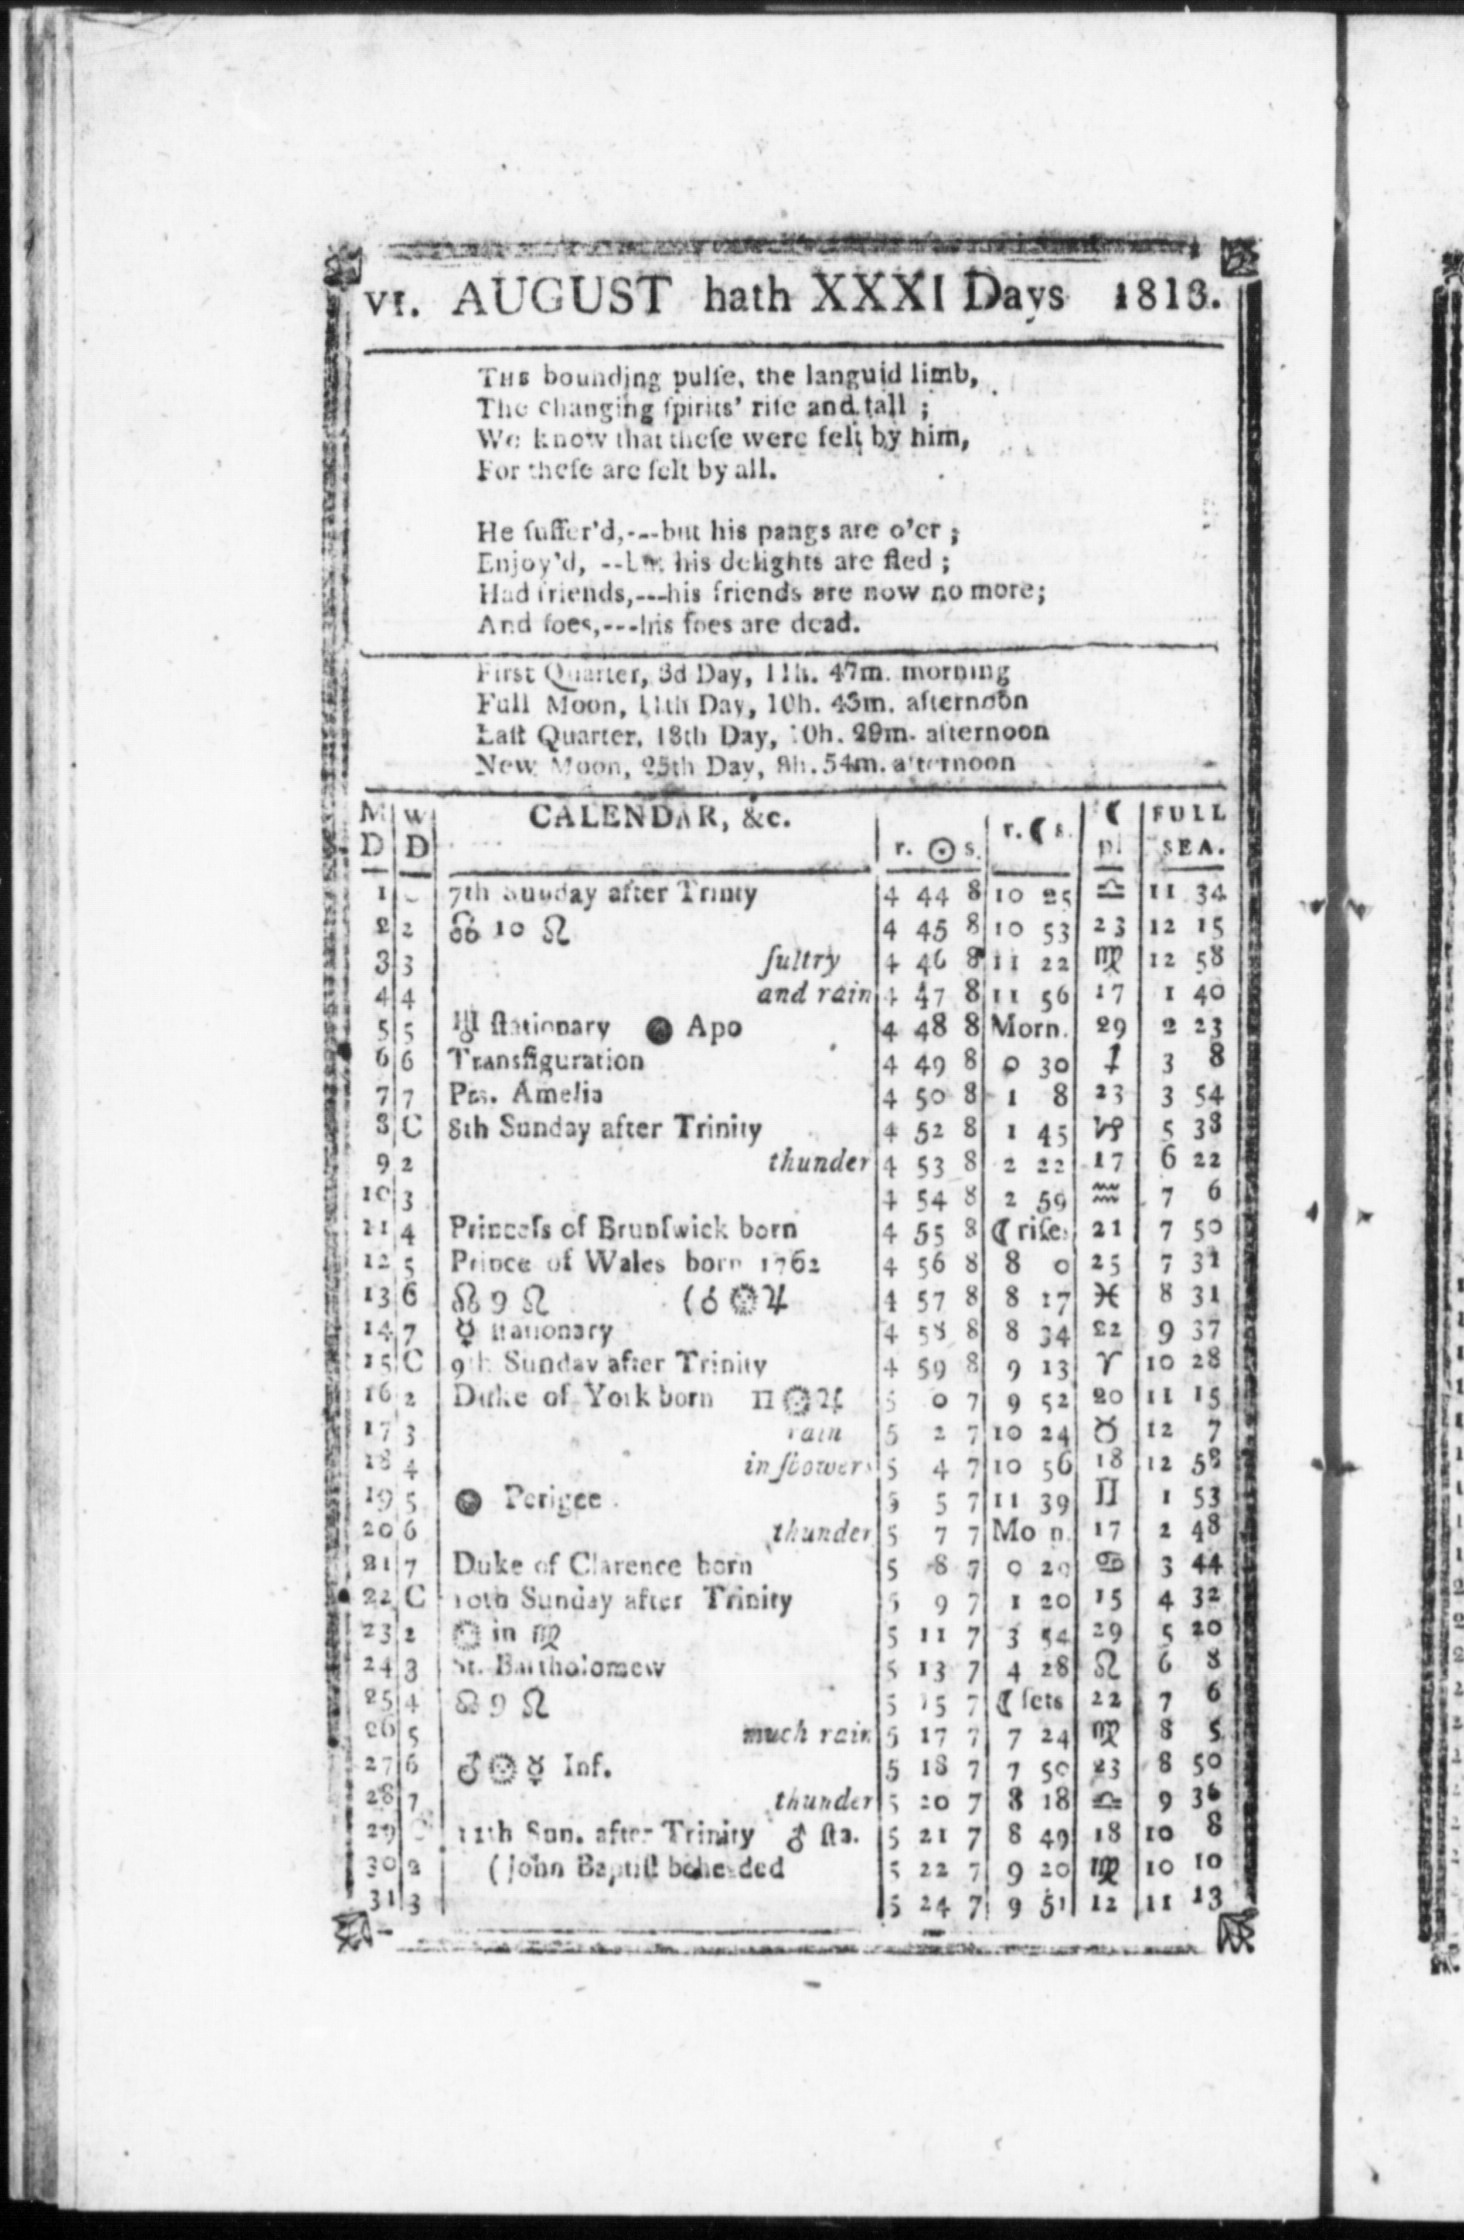 VI. AUGUST hath XXXI Days 1813.
THE bounding pulſe, the languid limb,
The changing ſpirits' riſe and fall ;
We know that theſe were felt by him,
For theſe are felt by all.
He ſuffer'd,---but his pangs are o'er ;
Enjoy'd, --but his delights are fled ;
Had friends,---his friends are now no more;
And foes,---his foes are dead.
First Quarter, 3d Day, 11h. 47m. morning
Full Moon, 11th Day, 10h. 45m. afternoon
Laſt Quarter, 18th Day, 10h. 29m. afternoon
New Moon, 25th Day, 8h. 54m. afternoon
M D W D CALENDAR, &c. r. ☉ s. r. ☾ s. ☾ pl FULL SEA.
1 C 7th Sunday after Trinty 4 44 8 10 25 ♎ 11 34
2 2 ☊ 10 ☊ 4 45 8 10 53 23 12 15
3 3 ſultry 4 46 8 11 22 ♍ 12 58
4 4 and rain 4 47 8 11 56 17 1 40
5 5 ♅ ſtationary Apo 4 48 8 Morn. 29 2 23
6 6 Transfiguration 4 49 8 0 30 ♐ 3 8
7 7 Prs. Amelia 4 50 8 1 8 23 3 54
8 C 8th Sunday after Trinity 4 52 8 1 45 ♑ 5 38
9 2 thunder 4 53 8 2 22 17 6 22
10 3 4 54 8 2 59 ♒ 7 6
11 4 Princeſs of Brunſwick born 4 55 8 ☾ riſes 21 7 50
12 5 Prince of Wales born 1762 4 56 8 8 0 25 7 31
13 6 ☊ 9 ☊ (☌ ☉ ♃ 4 57 8 8 17 ♓ 8 31
14 7 ☿ ſtationary 4 58 8 8 34 22 9 37
15 C 9th Sunday after Trinity 4 59 8 9 13 ♈ 10 28
16 2 Duke of York born II ☉ ♃ 5 0 7 9 52 20 11 15
17 3 rain 5 2 7 10 24 ♉ 12 7
18 4 in ſhowers 5 4 7 10 56 18 12 58
19 5 Perigee 5 5 7 11 39 ♊ 1 53
20 6 thunder 5 7 7 Mo n. 17 2 48
21 7 Duke of Clarence born 5 8 7 0 29 ♋ 3 44
22 C 10th Sunday after Trinity 5 9 7 1 20 15 4 32
23 2 ☉ in ♍ 5 11 7 3 54 29 5 20
24 3 St. Bartholomew 5 13 7 4 28 ♌ 6 8
25 4 ☊ 9 ☊ 5 15 7 ☾ ſets 22 7 6
26 5 much rain 5 17 7 7 24 ♍ 8 5
27 6 ♂ ☉ ☿ Inf. 5 18 7 7 50 23 8 50
28 7 thunder 5 20 7 8 18 ♎ 9 36
29 C 11th Sun. after Trinity ♂ ſta. 5 21 7 8 49 18 10 8
30 2 (John Baptiſt beheaded 5 22 7 9 20 ♍ 10 10
31 3 5 24 7 9 51 12 11 13